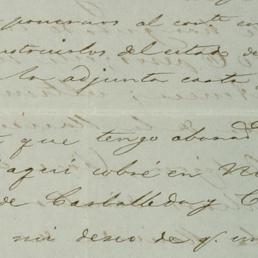 ponernos al corte en
instruirlos del estado de
la adjunta carta
que tengo abonad
aqui cobré en
de Carballeda y C
mi deseo de q. un